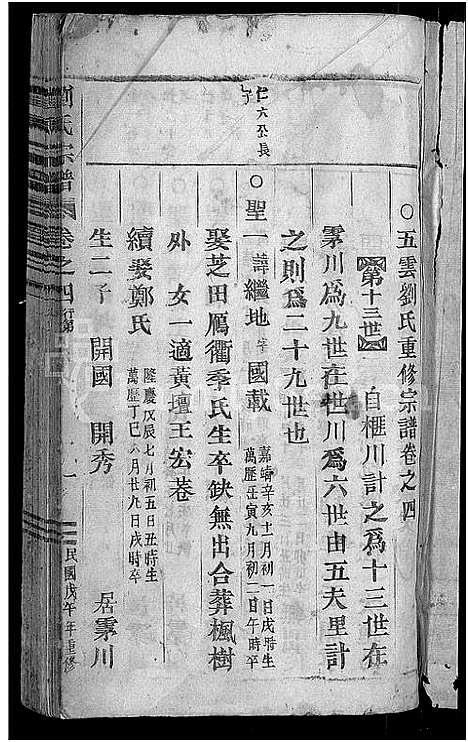 〇五雲劉氏重修宗譜卷之四
【第十三世】 自榧川計之爲十三世在
雾川爲九世在世川爲六世由五夫里計
之則爲二十九世也
仁六公長子
〇聖一諱繼地字國載 嘉靖辛亥十一月初一日戌時生
萬歷壬寅九月初二日午時卒
娶芝田鴈衢季氏生卒缺無出合葬楓樹
外 女一適黃壇王宏巷
續娶鄭氏 隆慶戊辰七月初五日丑時生
萬歷丁巳六月廿九日戌時卒
生二子 開國 開秀 居雾川
劉氏宗譜 卷之四 行第 一 民國戊午年重修